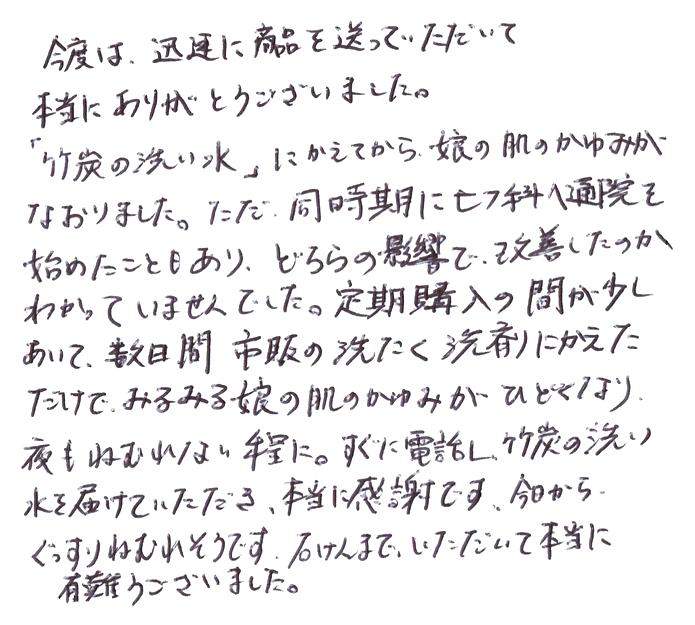 今度は、迅速に商品を送っていただいて
本当にありがとうございました。
「竹炭の洗い水」にかえてから、娘の肌のかゆみが
なおりました。ただ、同時期にヒフ科へ通院を
始めたこともあり、どちらの影響で、改善したのか
わかっていませんでした。定期購入の間が少し
あいて、数日間 市販の洗たく洗剤にかえた
だけで、みるみる娘の肌のかゆみがひどくなり、
夜もねむれない程に。すぐに電話し、竹炭の洗い
水を届けていただき、本当に感謝です、今日から
ぐっすりねむれそうです。石けんまで、いただいて本当に
有難うございました。